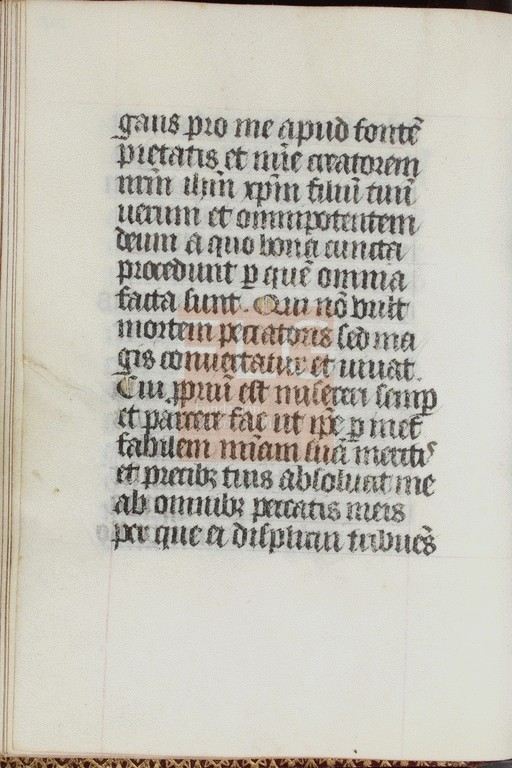 gans pro me apud fontē
pietatis et mīe creatorem
nrm̄ ihm̄ xpm̄ filiū tuū
uerum et omnipotentem
deum a quo bona cuncta
procedunt ꝑ quē omnia
facta sunt. Qui nō vult
mortem peccatoris sed ma
gis conuertatur et uiuat.
Cui ꝓpriū est misereri semp̄
et parcere fac ut ip̄e ꝑ inef
fabilem mīam suā meritis
et precibꝫ tuis absoluat me
ab omnibꝫ peccatis meis
per que ei displicui tribuēs